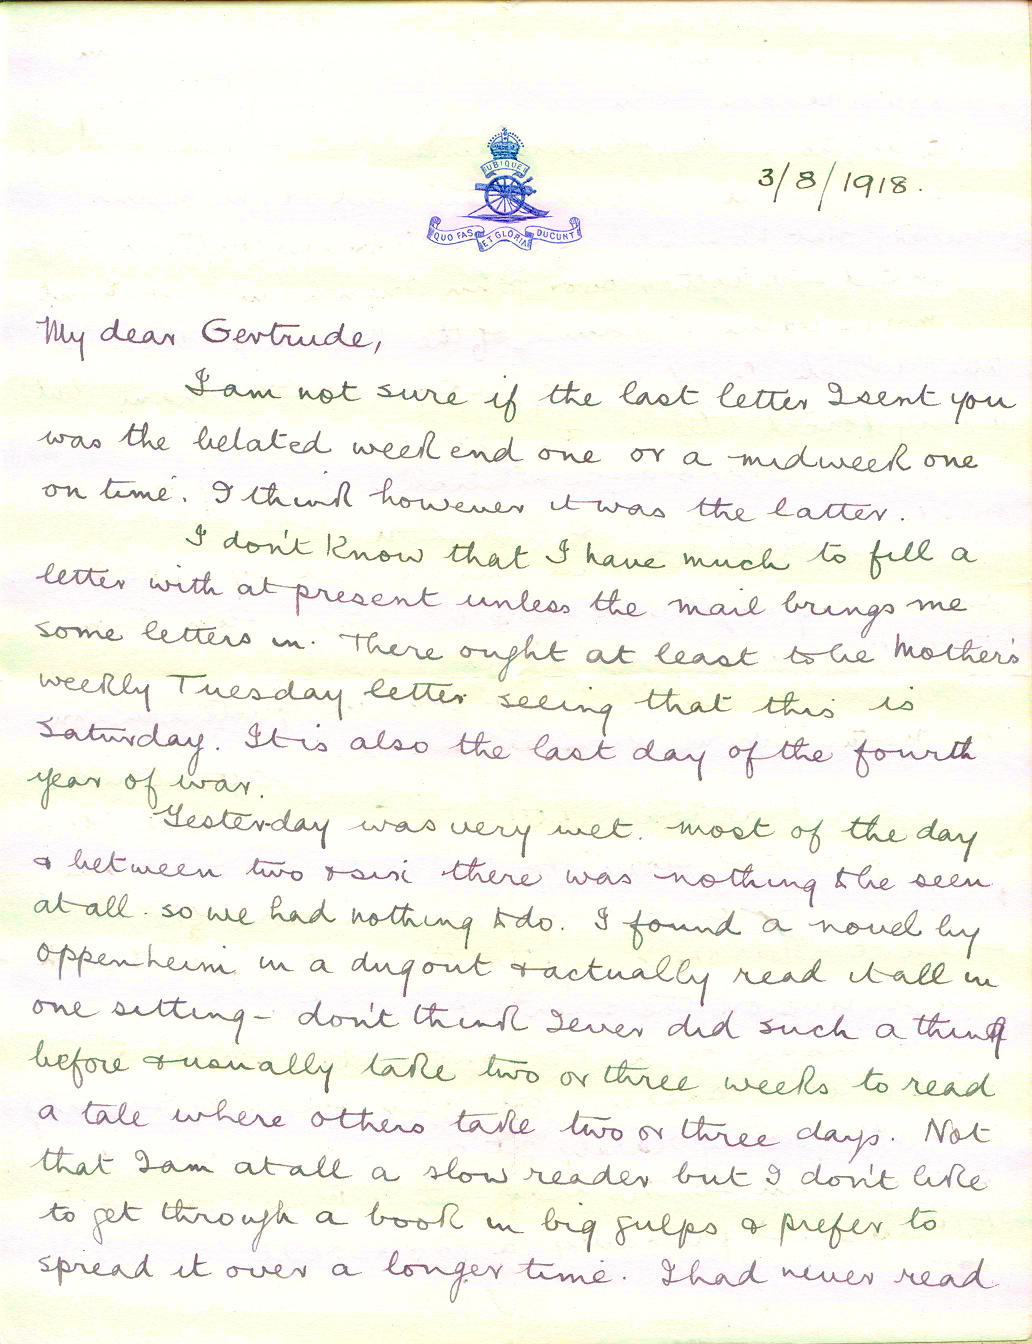 UBIQUE
QUO FAS ET GLORIA DUCUNT
3/8/1918.
My dear Gertrude,
I am not sure if the last letter I sent you
was the belated week end one or a midweek one
on time. I think however it was the latter.
I don't know that I have much to fill a
letter with at present unless the mail brings me
some letters in. There ought at least to be Mother's
weekly Tuesday letter seeing that this is
Saturday. It is also the last day of the fourth
year of war.
Yesterday was very wet. most of the day
& between two & six there was nothing to be seen
at all. so we had nothing to do. I found a novel by
Oppenheim in a dugout & actually read it all in
one sitting - don't think I ever did such a thing
before & usually take two or three weeks to read
a tale where others take two or three days. Not
that I am at all a slow reader but I don't like
to get through a book in big gulps & prefer to
spread it over a longer time. I had never read